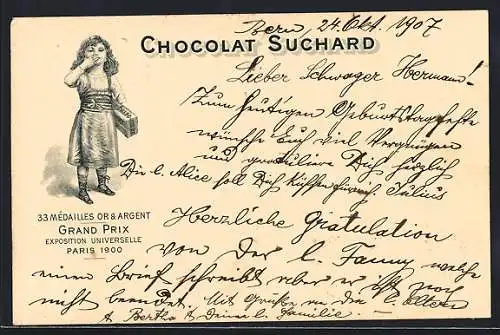 Bern, 24. Okt. 1907
CHOCOLAT SUCHARD
Lieber Schwager Hermann!
Zum heutigen Geburtstagsfeste
wünsche Euch viel Vergnügen
und gratuliere Dich herzlich
Die l. Alice soll Dich küssen Julius
33 MÉDAILLES OR & ARGENT
GRAND PRIX
EXPOSITION UNIVERSELLE
PARIS 1900
Herzliche Gratulation
von der l. Fanny welche
einen Brief schreibt aber er ist noch
nicht beendet. Mit Grüße an die l. Eltern
& Bertha & deine l. Familie.